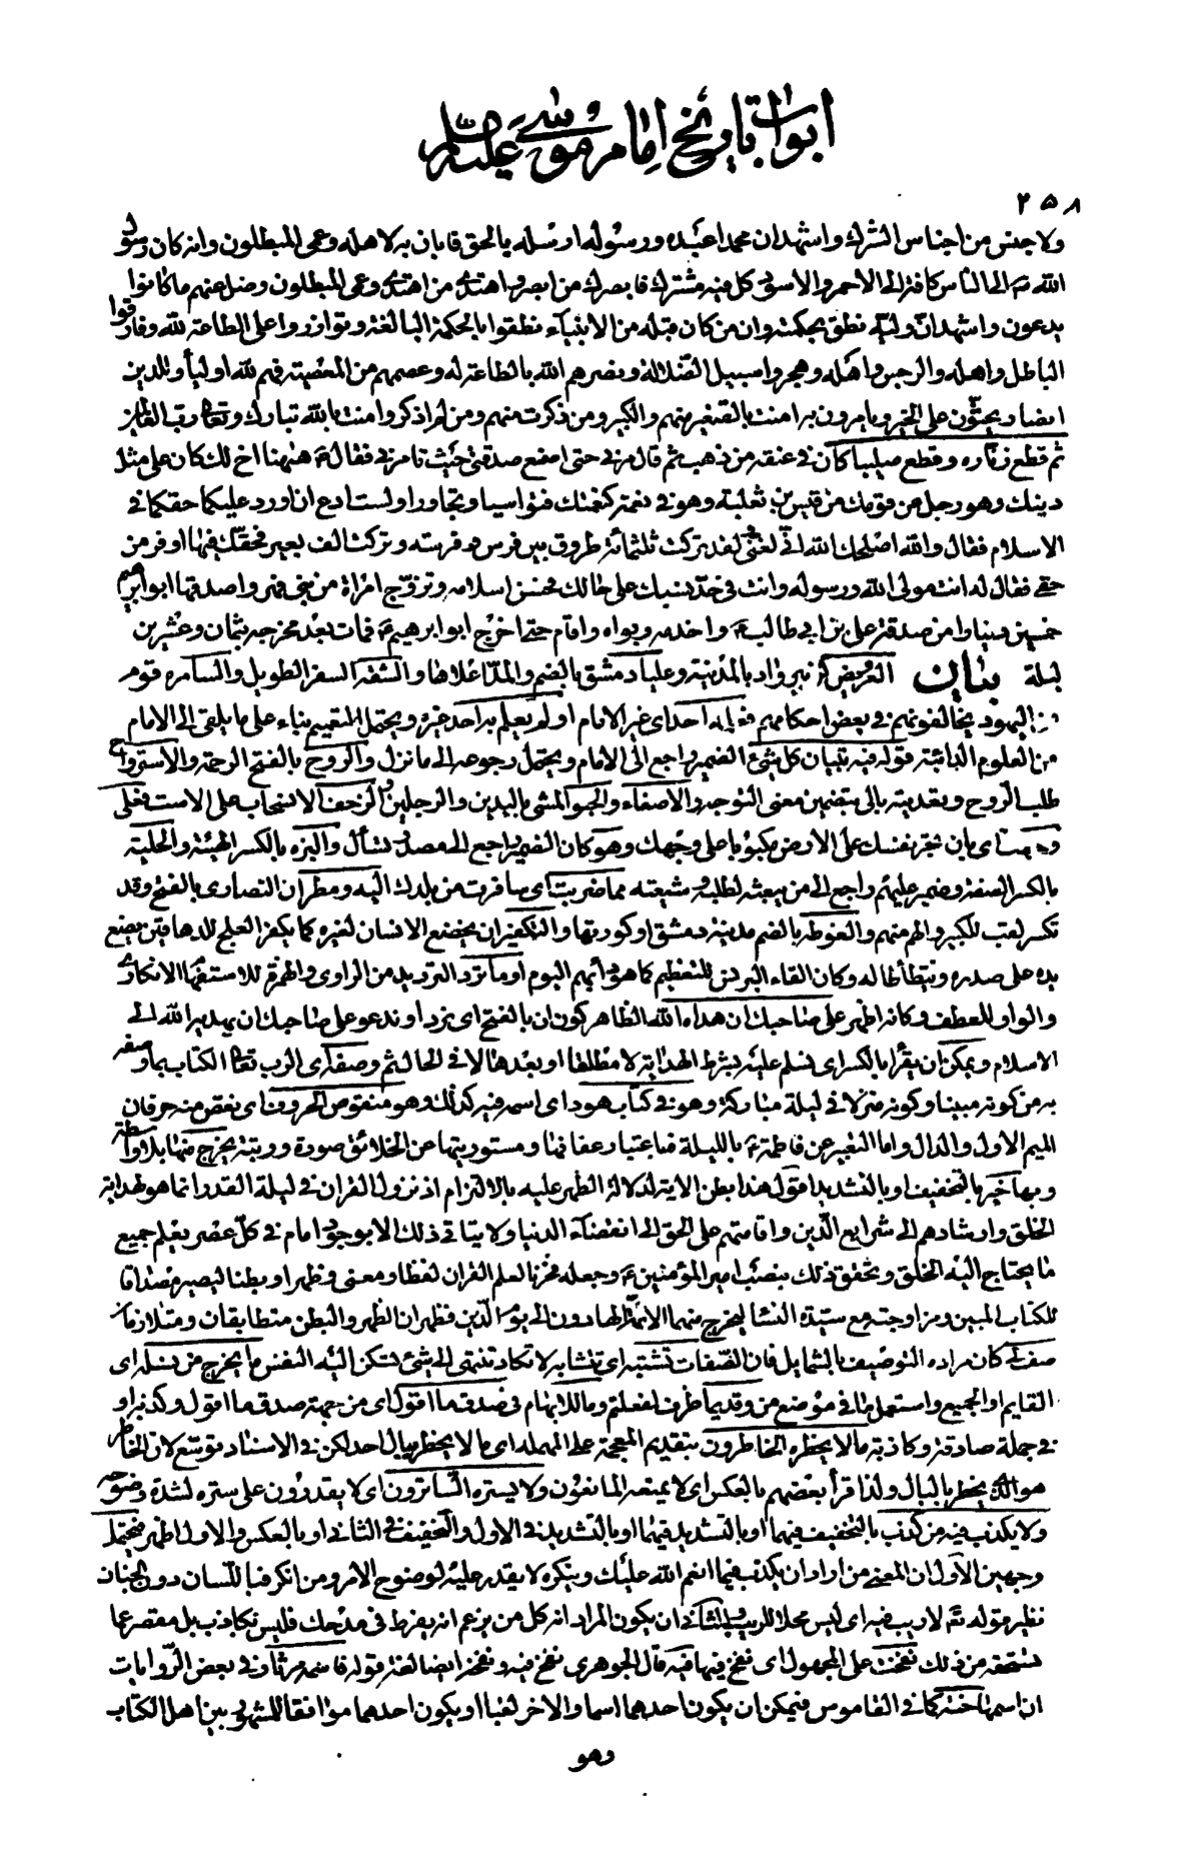 ابواب تاريخ الامام موسى عليه السلام
٢٥٨
ولا جنس من اجناس الشرك واشهد ان محمدا عبده ورسوله ارسله بالحق فابان به لاهله وعمى المبطلون وانه كان رسول
الله ص الى الناس كافة الى الاحمر والاسود كل فيه مشترك فابصر من ابصر واهتدى من اهتدى وعمى المبطلون وضل عنهم ما كانوا
يدعون واشهد ان وليه نطق بحكمته وان من كان قبله من الانبياء نطقوا بالحكمة البالغة وتوازروا على الطاعة لله وفارقوا
الباطل واهله والرجس واهله وهجروا سبيل الضلالة ونصرهم الله بالطاعة له وعصمهم من المعصية فهم لله اولياء وللدين
انصار يحثون على الخير ويامرون به امنت بالصغير منهم والكبير ومن ذكرت منهم ومن لم اذكر وامنت بالله تبارك وتعالى رب العالمين
ثم قطع زناره وقطع صليبا كان في عنقه من ذهب ثم قال مرني حتى اضع صدقتي حيث تامرني فقال ع ههنا اخ لك كان على مثل
دينك وهو رجل من قومك من قيس بن ثعلبة وهو في نعمة كنعمتك فتواسيا وتجاورا ولست ادع ان اورد عليكما حقكما في
الاسلام فقال والله اصلحك الله اني لغني ولقد تركت ثلثمائة طروق بين فرس وفرسة وتركت الف بعير فحقك فيها اوفر من
حقي فقال له انت مولى الله ورسوله وانت في حد نسبك على حالك فحسن اسلامه وتزوج امراة من بني فهر واصدقها ابو ابرهيم
خمسين دينارا من صدقة علي بن ابي طالب ع واخدمه وبواه واقام حتى اخرج ابو ابرهيم ع فمات بعد مخرجه بثمان وعشرين
ليلة بيان العريض كزبير واد بالمدينة وعليا دمشق بالضم والمد اعلاها والشقة السفر الطويل والسامرة قوم
من اليهود يخالفونهم في بعض احكامهم احدا اي غير الامام او لم يعلم به احد غيره ويحتمل التعميم بناء على ما يلقى الى الامام
من العلوم الدائبة قوله فيه تبيان كل شيء الضمير راجع الى الامام ويحتمل رجوعه الى ما نزل والروح بالفتح الرحمة والاسترواح
طلب الروح وتعديته بالى بتضمين معنى التوجه والاصغاء والحبو المشي باليدين والرجلين والزحف الانسحاب على الاست فعلى
اي بان تجر نفسك على الارض مكبوبا على وجهك وهو كان الضمير راجع الى مصدر تسأل والبزة بالكسر الهيئة والحلية
بالكسر الصفة وضمير عليهم راجع الى من يبعثه لطلبه شيعته مما ضربت اي سافرت من بلدك اليه ومطران النصارى بالفتح وقد
تكسر لقب للكبير والهم منهم والغوطة بالضم مدينة دمشق او كورتها والتكفير ان يخضع الانسان لغيره كما يكفر العلج للدهاقين يضع
يده على صدره ويتطأطأ له وكان القاء البرنس للتعظيم كما هو دأبهم اليوم او ما ترد الترديد من الراوي والهمزة للاستفهام الانكاري
والواو للعطف وكانه اظهر على صاحبك ان هداه الله الظاهر كون ان بالفتح اي نرد او ندعو على صاحبك ان يهديه الله الى
الاسلام ويمكن ان يقرأ بالكسر اي نسلم عليه بشرط الهداية لا مطلقا او بعدها لا في الحال ثم وصفه اي الرب تعالى الكتاب بما وصفه
به من كونه مبينا وكونه منزلا في ليلة مباركة وهو في كتاب هود اي اسمه فيه كذلك وهو منقوص الحروف اي نقص منه حرفان
الميم الاول والدال واما التعبير عن فاطمة ع بالليلة فباعتبار عفافها ومستوريتها عن الخلائق صورة ورتبة يخرج منها بلا واسطة
وبها خير بالتخفيف او بالتشديد اقول هذا بطن الاية لدلالة الظهر عليه بالالتزام اذ نزول القران في ليلة القدر انما هو لهداية
الخلق وارشادهم الى شرايع الدين واقامتهم على الحق الى انقضاء الدنيا ولا يتاتى ذلك الا بوجود امام في كل عصر يعلم جميع
ما يحتاج اليه الخلق وتحقق ذلك بنصب امير المؤمنين ع وجعله مخزنا لعلم القران لفظا ومعنى وظهرا وبطنا ليصير مصداقا
للكتاب المبين ومزاوجته مع سيدة النساء ليخرج منهما الائمة الهادون الى يوم الدين فظهر ان الظهر والبطن متطابقان ومتلازمان
صف لي كان مراده التوصيف بالشمايل فان الصفات تشتبه اي تتشابه لا تكاد تنتهي الى شيء تسكن اليه النفس ما يخرج من نسله اي
القايم او الجميع واستعمل ما في موضع من وقديما ظرف لفعلتم وما للابهام في صدق ما اقول اي من جهة صدق ما اقول وكذبه او
في جملة صادقة وكاذبة ما لا يخطره الخاطرون بتقديم المعجمة على المهملة اي ما لا يخطر ببال احد لكن في الاسناد توسع لان الخاطر
هو الذي يخطر بالبال ولذا قرأ بعضهم بالعكس اي لا يمنعه المانعون ولا يستره الساترون اي لا يقدرون على ستره لشدة وضوحه
ولا يكذب فيه من كذب بالتخفيف فيهما او بالتشديد فيهما او بالتشديد في الاول والتخفيف في الثاني او بالعكس والاول اظهر فيحتمل
وجهين الاول ان المعنى من اراد ان يكذب فيما انعم الله عليك وينكره لا يقدر عليه لوضوح الامر ومن انكر فباللسان دون الجنان
نظير قوله تع لا ريب فيه اي ليس محلا للريب والثاني ان يكون المراد انه كل من يزعم انه يفرط في مدحك فليس بكاذب بل مقصر عما
تستحقه من ذلك نفخت على المجهول اي نفخ فيها فيه قال الجوهري نفخ فيه ونفخه ايضا لغة قوله فاسمه مرثا وفي بعض الروايات
ان اسمها حنة كما في القاموس فيمكن ان يكون احدهما اسما والاخر لقبا او يكون احدهما موافقا للمشهور بين اهل الكتاب
وهو